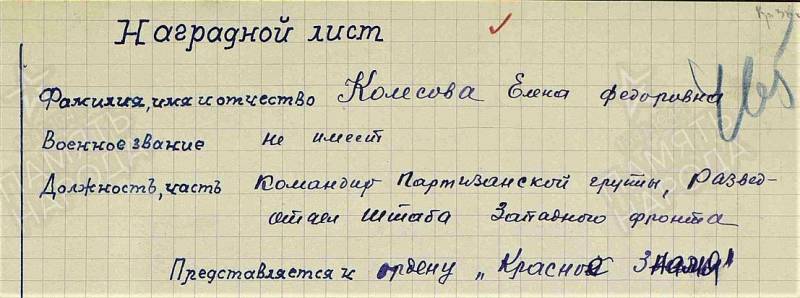 Наградной лист
Фамилия, имя и отчество Колесова Елена Федоровна
Военное звание не имеет
Должность, часть Командир партизанской группы, развед-
отдел штаба Западного фронта
Представляется к ордену „Красное Знамя"
ПАМЯТЬ НАРОДА
ПАМЯТЬ НАРОДА